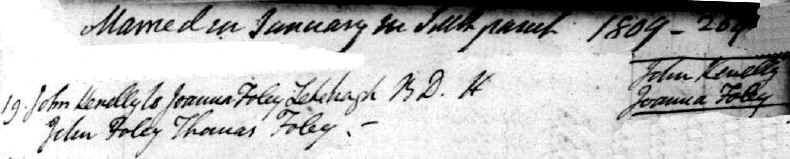 Married in January in Sd parish 1809 - 
19. John Kenelly to Joanna Foley B D. H
John Foley Thomas Foley. -
John Kenelly
Joanna Foley